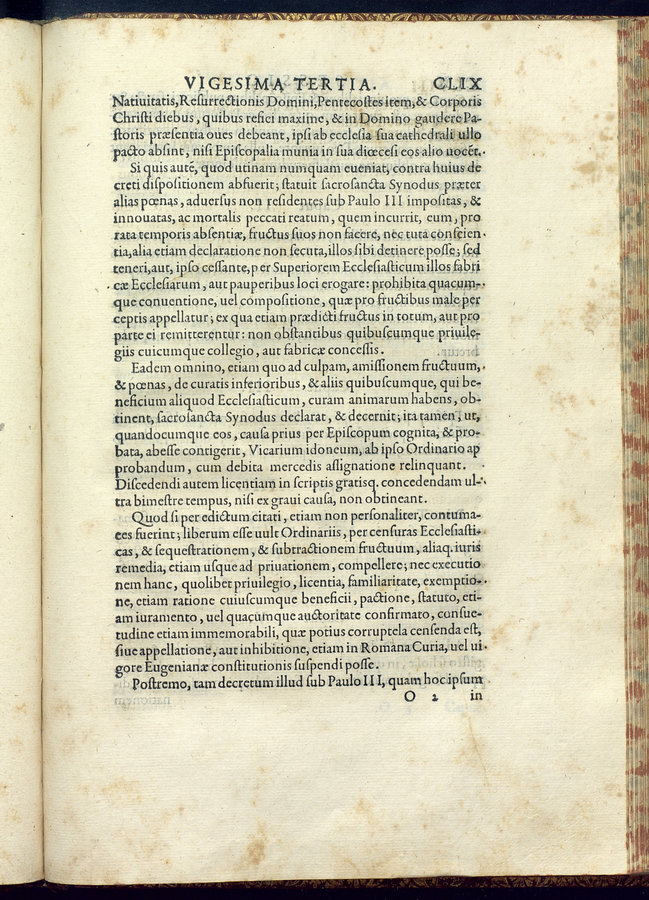 VIGESIMA TERTIA. CLIX
Natiuitatis, Resurrectionis Domini, Pentecostes item, & Corporis
Christi diebus, quibus refici maxime, & in Domino gaudere Pa-
storis præsentia oues debeant, ipsi ab ecclesia sua cathedrali ullo
pacto absint, nisi Episcopalia munia in sua diœcesi eos alio uocẽt.
Si quis autẽ, quod utinam numquam eueniat, contra huius de
creti dispositionem abfuerit; statuit sacrosancta Synodus præter
alias pœnas, aduersus non residentes sub Paulo III impositas, &
innouatas, ac mortalis peccati reatum, quem incurrit, eum, pro
rata temporis absentiæ, fructus suos non facere, nec tuta conscien
tia, alia etiam declaratione non secuta, illos sibi detinere posse; sed
teneri, aut, ipso cessante, per Superiorem Ecclesiasticum illos fabri
cæ Ecclesiarum, aut pauperibus loci erogare: prohibita quacum-
que conuentione, uel compositione, quæ pro fructibus male per
ceptis appellatur; ex qua etiam prædicti fructus in totum, aut pro
parte ei remitterentur: non obstantibus quibuscumque priuile-
giis cuicumque collegio, aut fabricæ concessis.
Eadem omnino, etiam quo ad culpam, amissionem fructuum,
& pœnas, de curatis inferioribus, & aliis quibuscumque, qui be-
neficium aliquod Ecclesiasticum, curam animarum habens, ob-
tinent, sacrosancta Synodus declarat, & decernit; ita tamen, ut,
quandocumque eos, causa prius per Episcopum cognita, & pro-
bata, abesse contigerit, Vicarium idoneum, ab ipso Ordinario ap
probandum, cum debita mercedis assignatione relinquant.
Discedendi autem licentiam in scriptis gratisq. concedendam ul-
tra bimestre tempus, nisi ex graui causa, non obtineant.
Quod si per edictum citati, etiam non personaliter, contuma-
ces fuerint; liberum esse uult Ordinariis, per censuras Ecclesiasti-
cas, & sequestrationem, & subtractionem fructuum, aliaq. iuris
remedia, etiam usque ad priuationem, compellere; nec executio
nem hanc, quolibet priuilegio, licentia, familiaritate, exemptio-
ne, etiam ratione cuiuscumque beneficii, pactione, statuto, eti-
am iuramento, uel quacumque auctoritate confirmato, consue-
tudine etiam immemorabili, quæ potius corruptela censenda est,
siue appellatione, aut inhibitione, etiam in Romana Curia, uel ui
gore Eugenianæ constitutionis suspendi posse.
Postremo, tam decretum illud sub Paulo III, quam hoc ipsum
O 2 in